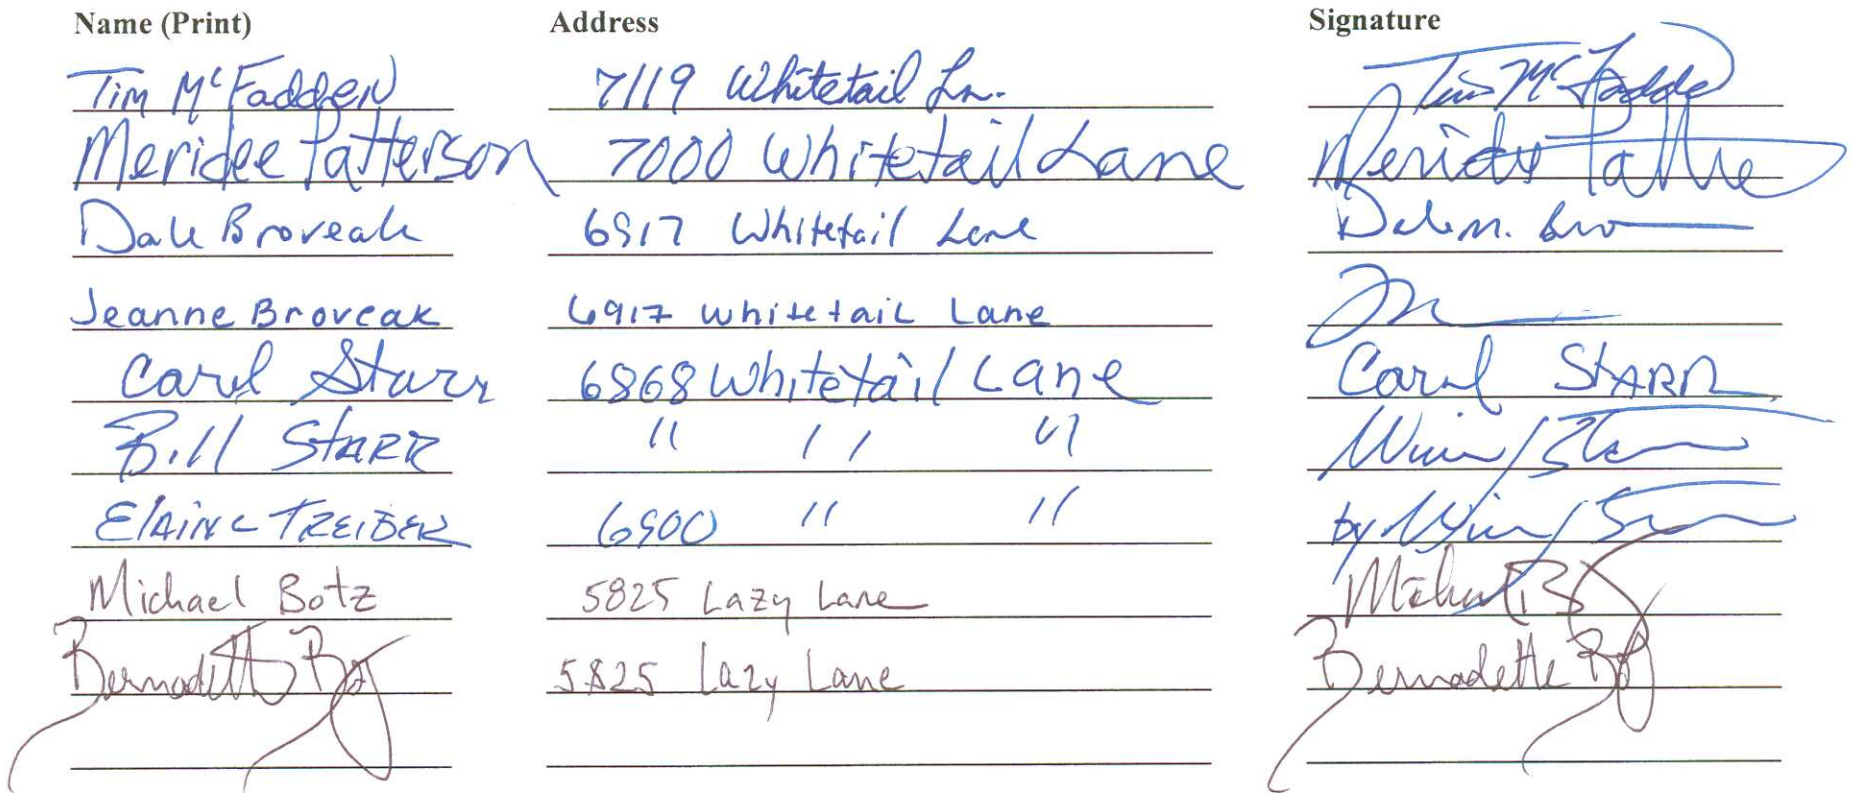 Name (Print) Address Signature
Tim McFadden 7119 Whitetail Ln. Tim McFadde
Meridee Patterson 7000 Whitetail Lane Meridee Patte
Dale Broveak 6917 Whitetail Lane Dale m. Bro
Jeanne Broveak 6917 whitetail Lane
Carol Starr 6868 Whitetail Lane Carol STARR
Bill STARR " " "
ElAiNe TREIBER 6900 " " by
Michael Botz 5825 Lazy Lane Michael B
Bernadette Botz 5825 Lazy Lane Bernadette Botz